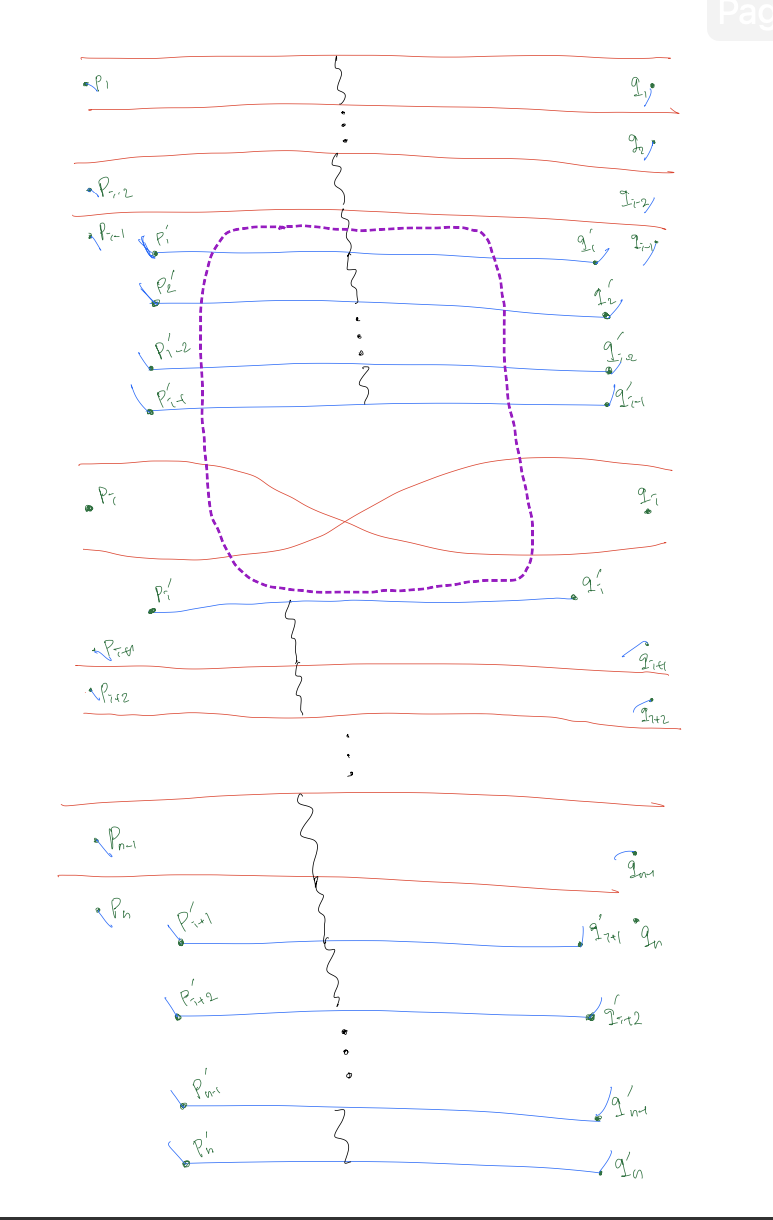 Pag
P₁ q₁
q₂
Pᵢ₋₂ qᵢ₋₂
Pᵢ₋₁ P₁′ q₁′ qᵢ₋₁
P₂′ q₂′
P′ᵢ₋₂ q′ᵢ₋₂
P′ᵢ₋₁ q′ᵢ₋₁
Pᵢ qᵢ
Pᵢ′ qᵢ′
Pᵢ₊₁ qᵢ₊₁
Pᵢ₊₂ qᵢ₊₂
Pₙ₋₁ qₙ₋₁
Pₙ P′ᵢ₊₁ q′ᵢ₊₁ qₙ
P′ᵢ₊₂ q′ᵢ₊₂
P′ₙ₋₁ q′ₙ₋₁
P′ₙ q′ₙ